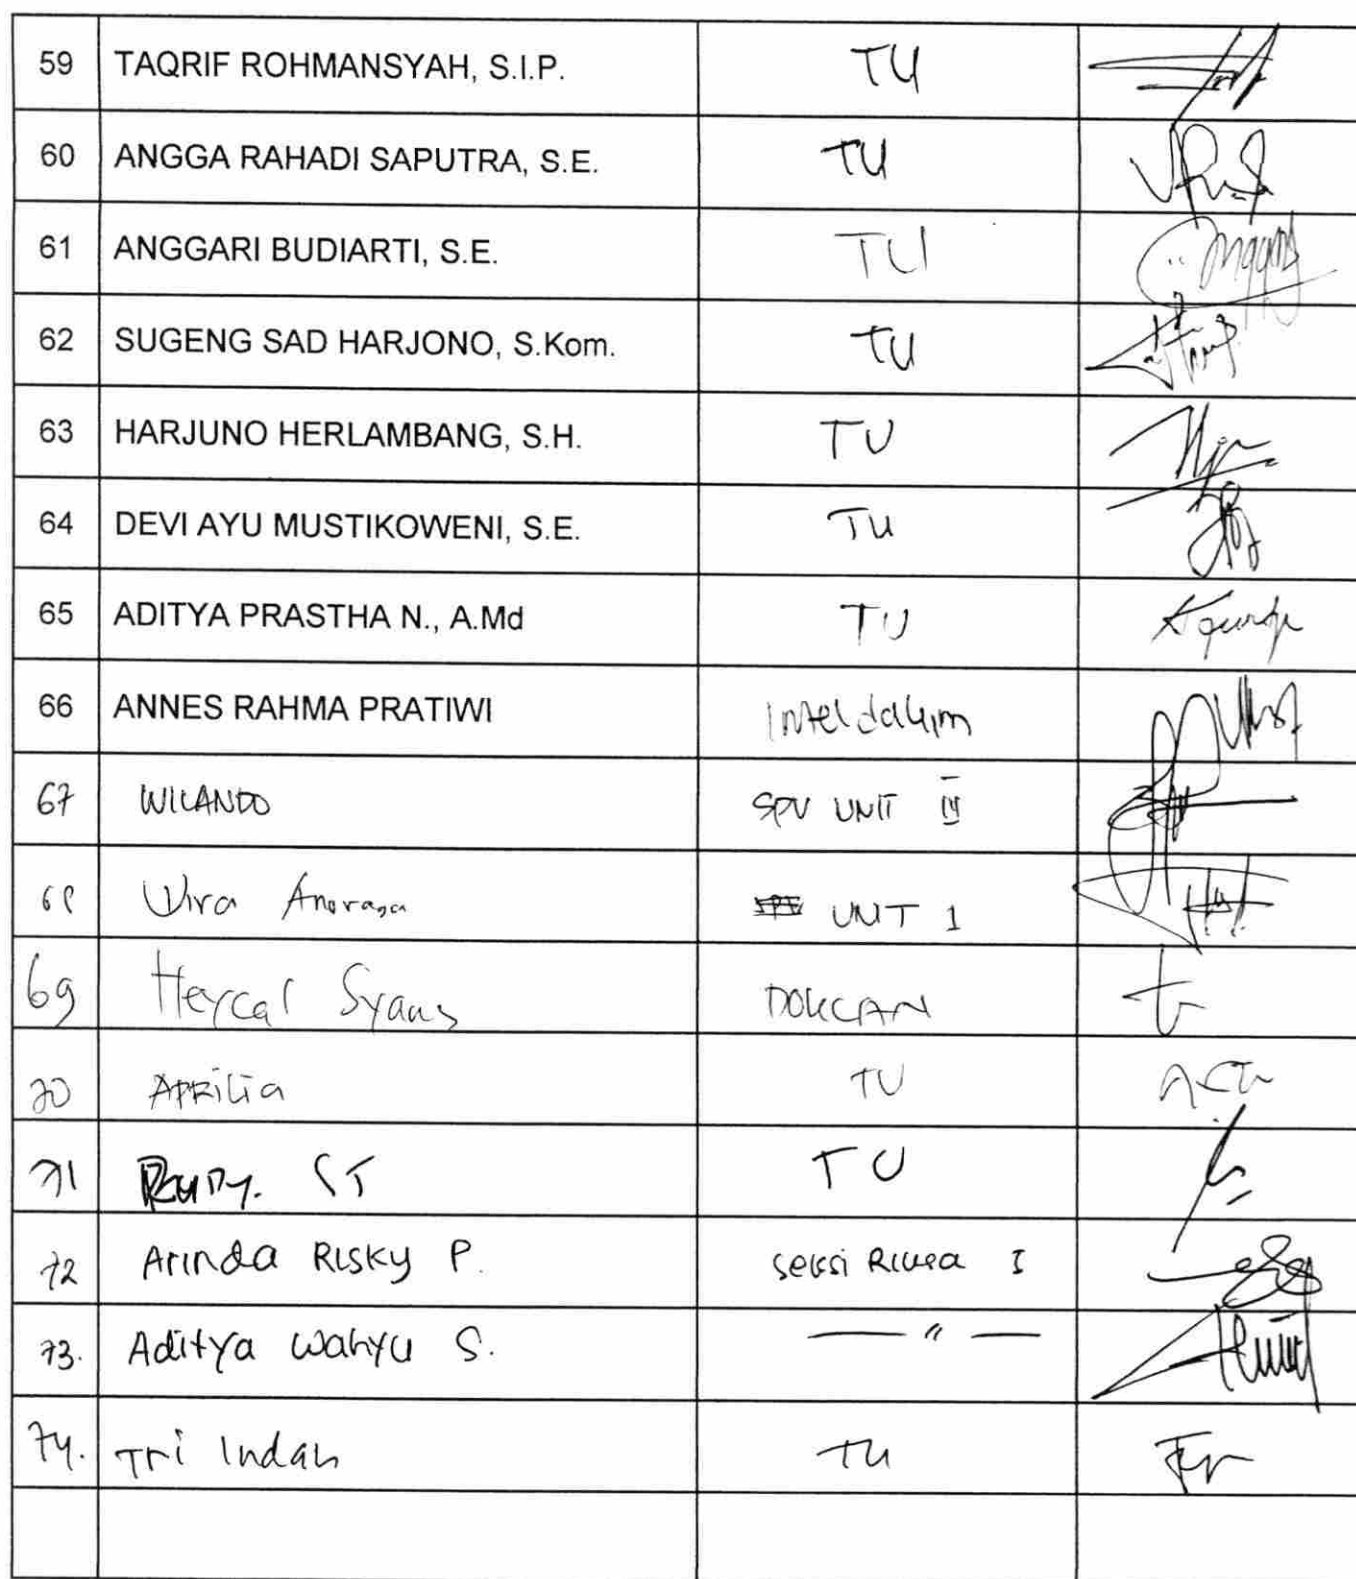 59 TAQRIF ROHMANSYAH, S.I.P. TU
60 ANGGA RAHADI SAPUTRA, S.E. TU
61 ANGGARI BUDIARTI, S.E. TU
62 SUGENG SAD HARJONO, S.Kom. TU
63 HARJUNO HERLAMBANG, S.H. TU
64 DEVI AYU MUSTIKOWENI, S.E. TU
65 ADITYA PRASTHA N., A.Md TU
66 ANNES RAHMA PRATIWI Inteldakim
67 WILANDO SPV UNIT
68 Wira Anoraga UNIT 1
69 Heycal DOKLAN
70 APRILIA TU
71 ST TU
72 Arinda RISKY P. seksi I
73. Aditya Wahyu S. — " —
74. Tri Indah TU